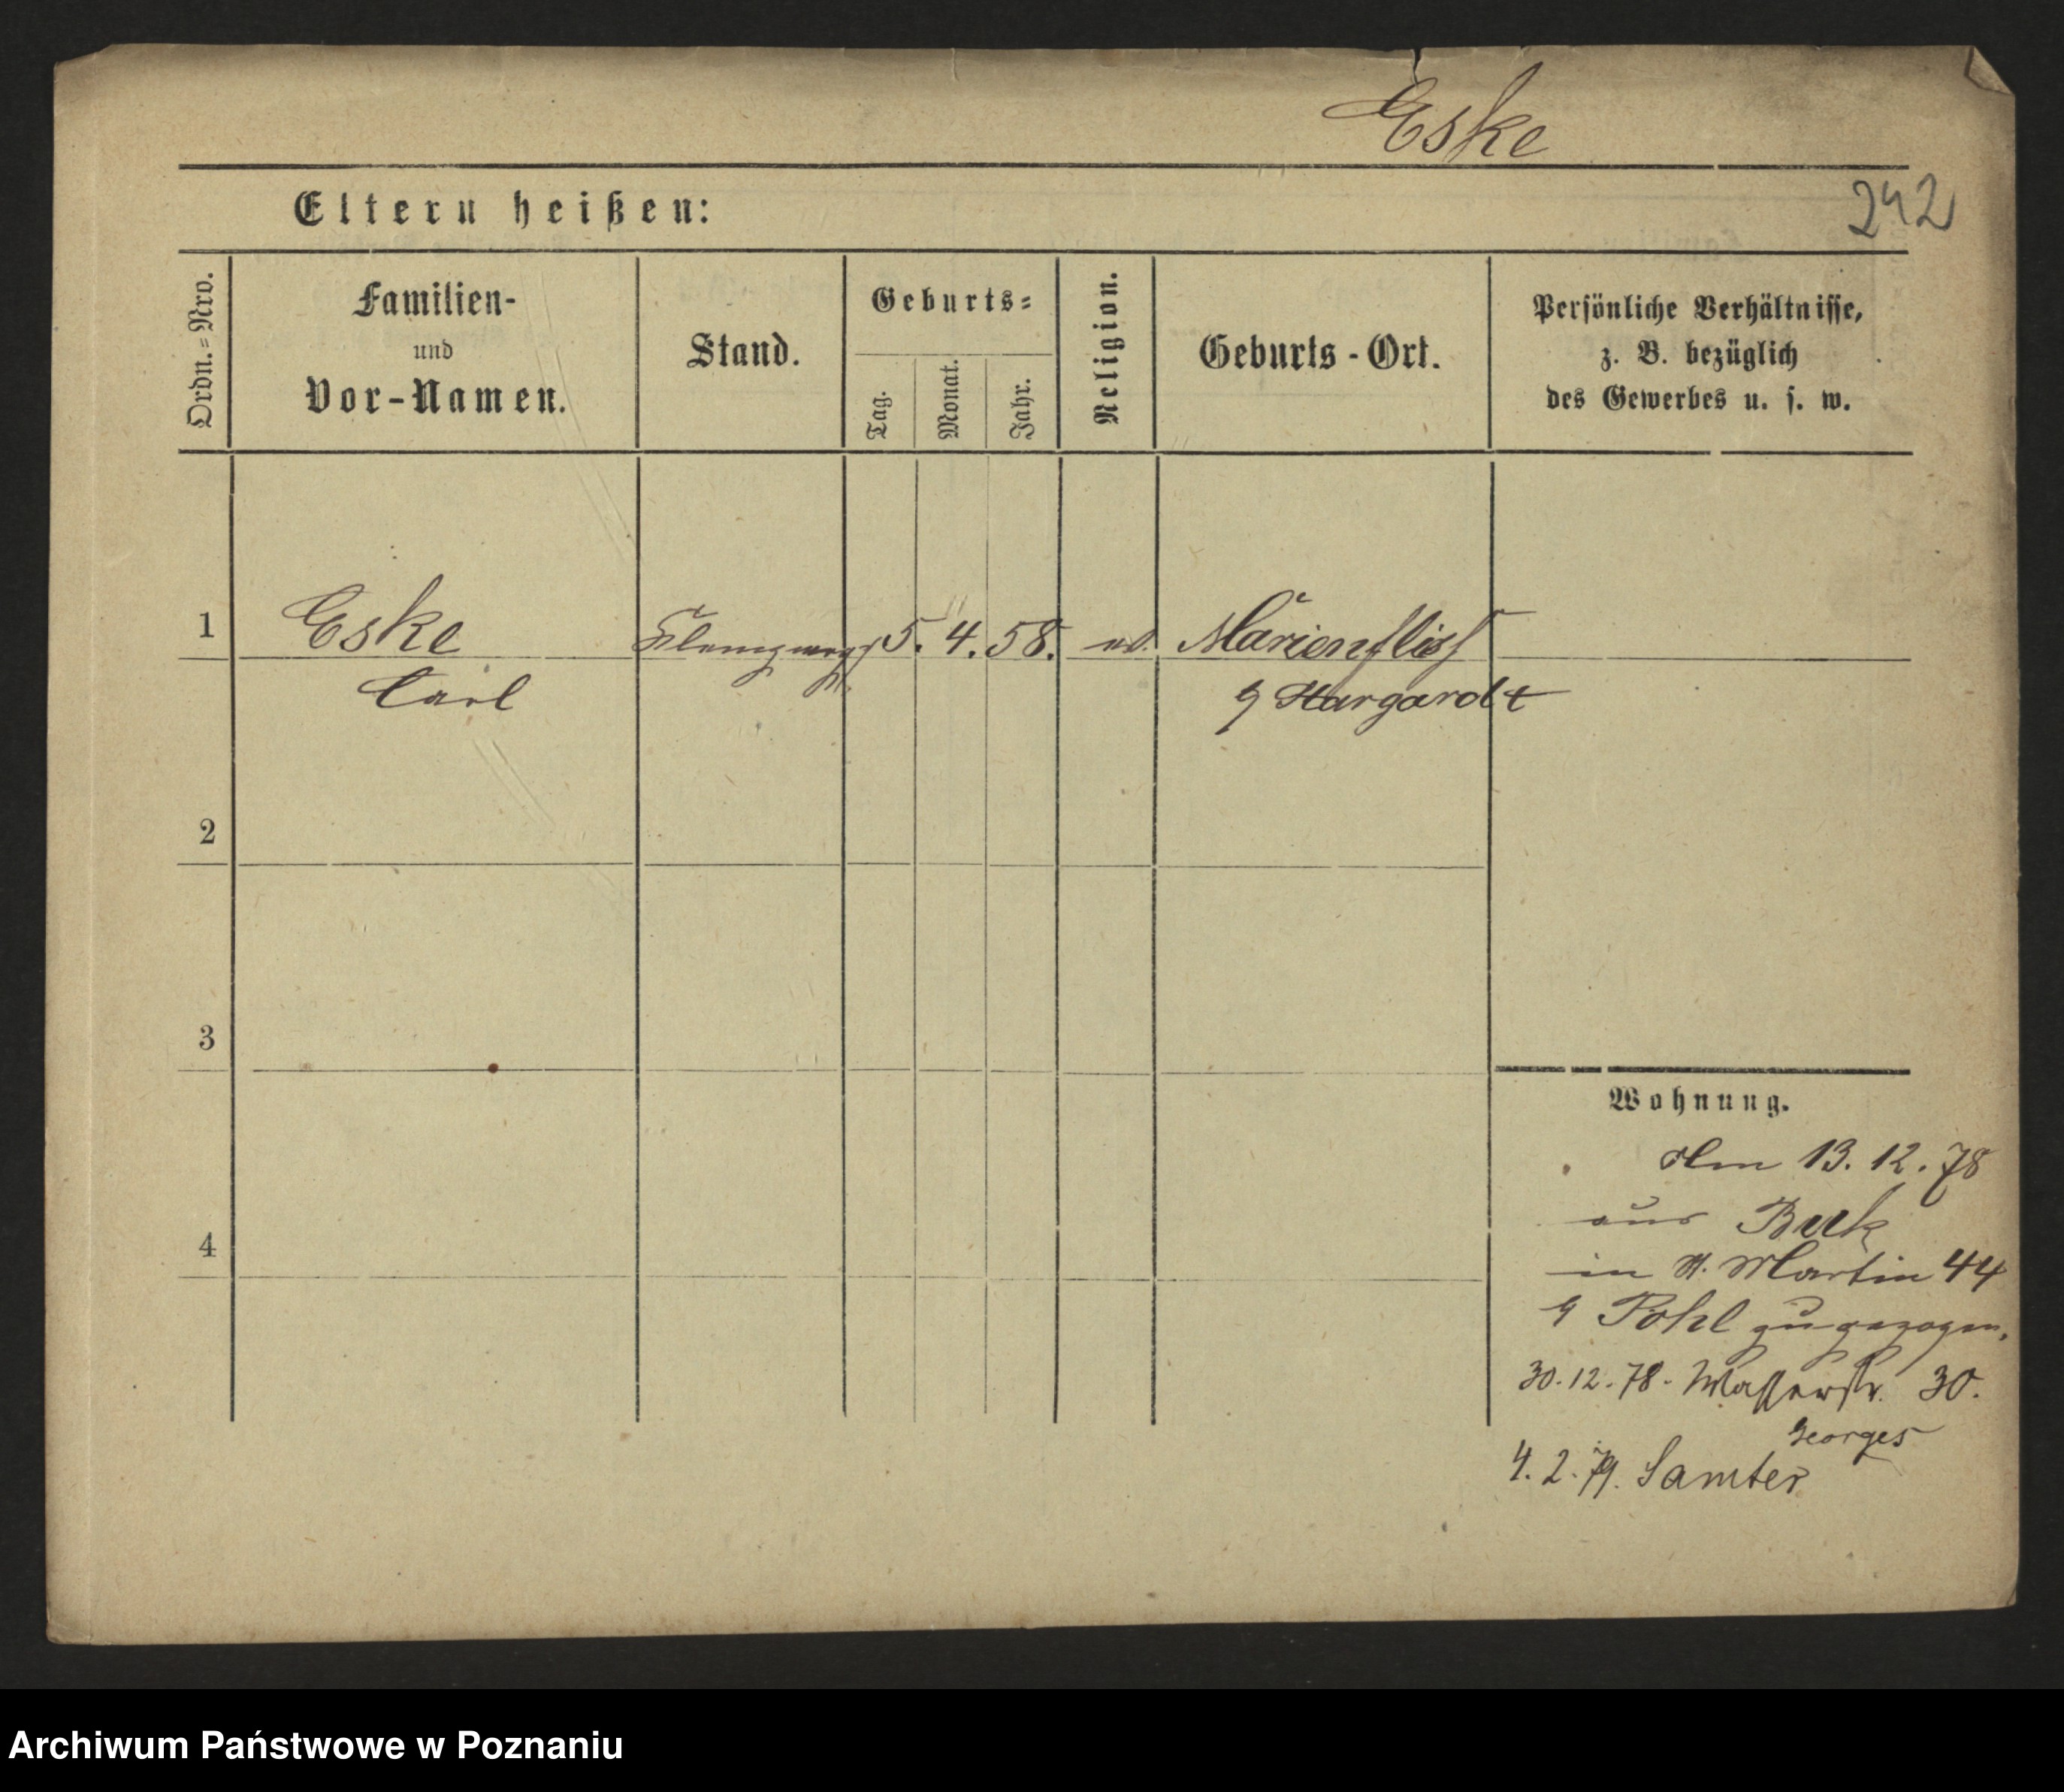 Eske
242
Eltern heißen:
Ordn.=Nro.
Familien-
und
Vor-Namen.
Stand.
Geburts=
Tag.
Monat.
Jahr.
Religion.
Geburts-Ort.
Persönliche Verhältnisse,
z. B. bezüglich
des Gewerbes u. s. w.
1 Eske 5. 4. 58. ev. Marienfliess
Carl Stargardt
2
3
4
Wohnung.
Am 13. 12. 78
aus Buk
in St. Martin 44
Pohl zugezogen,
30.12.78. Wasserstr. 30.
Georges
4. 2. 79. Samter
Archiwum Państwowe w Poznaniu